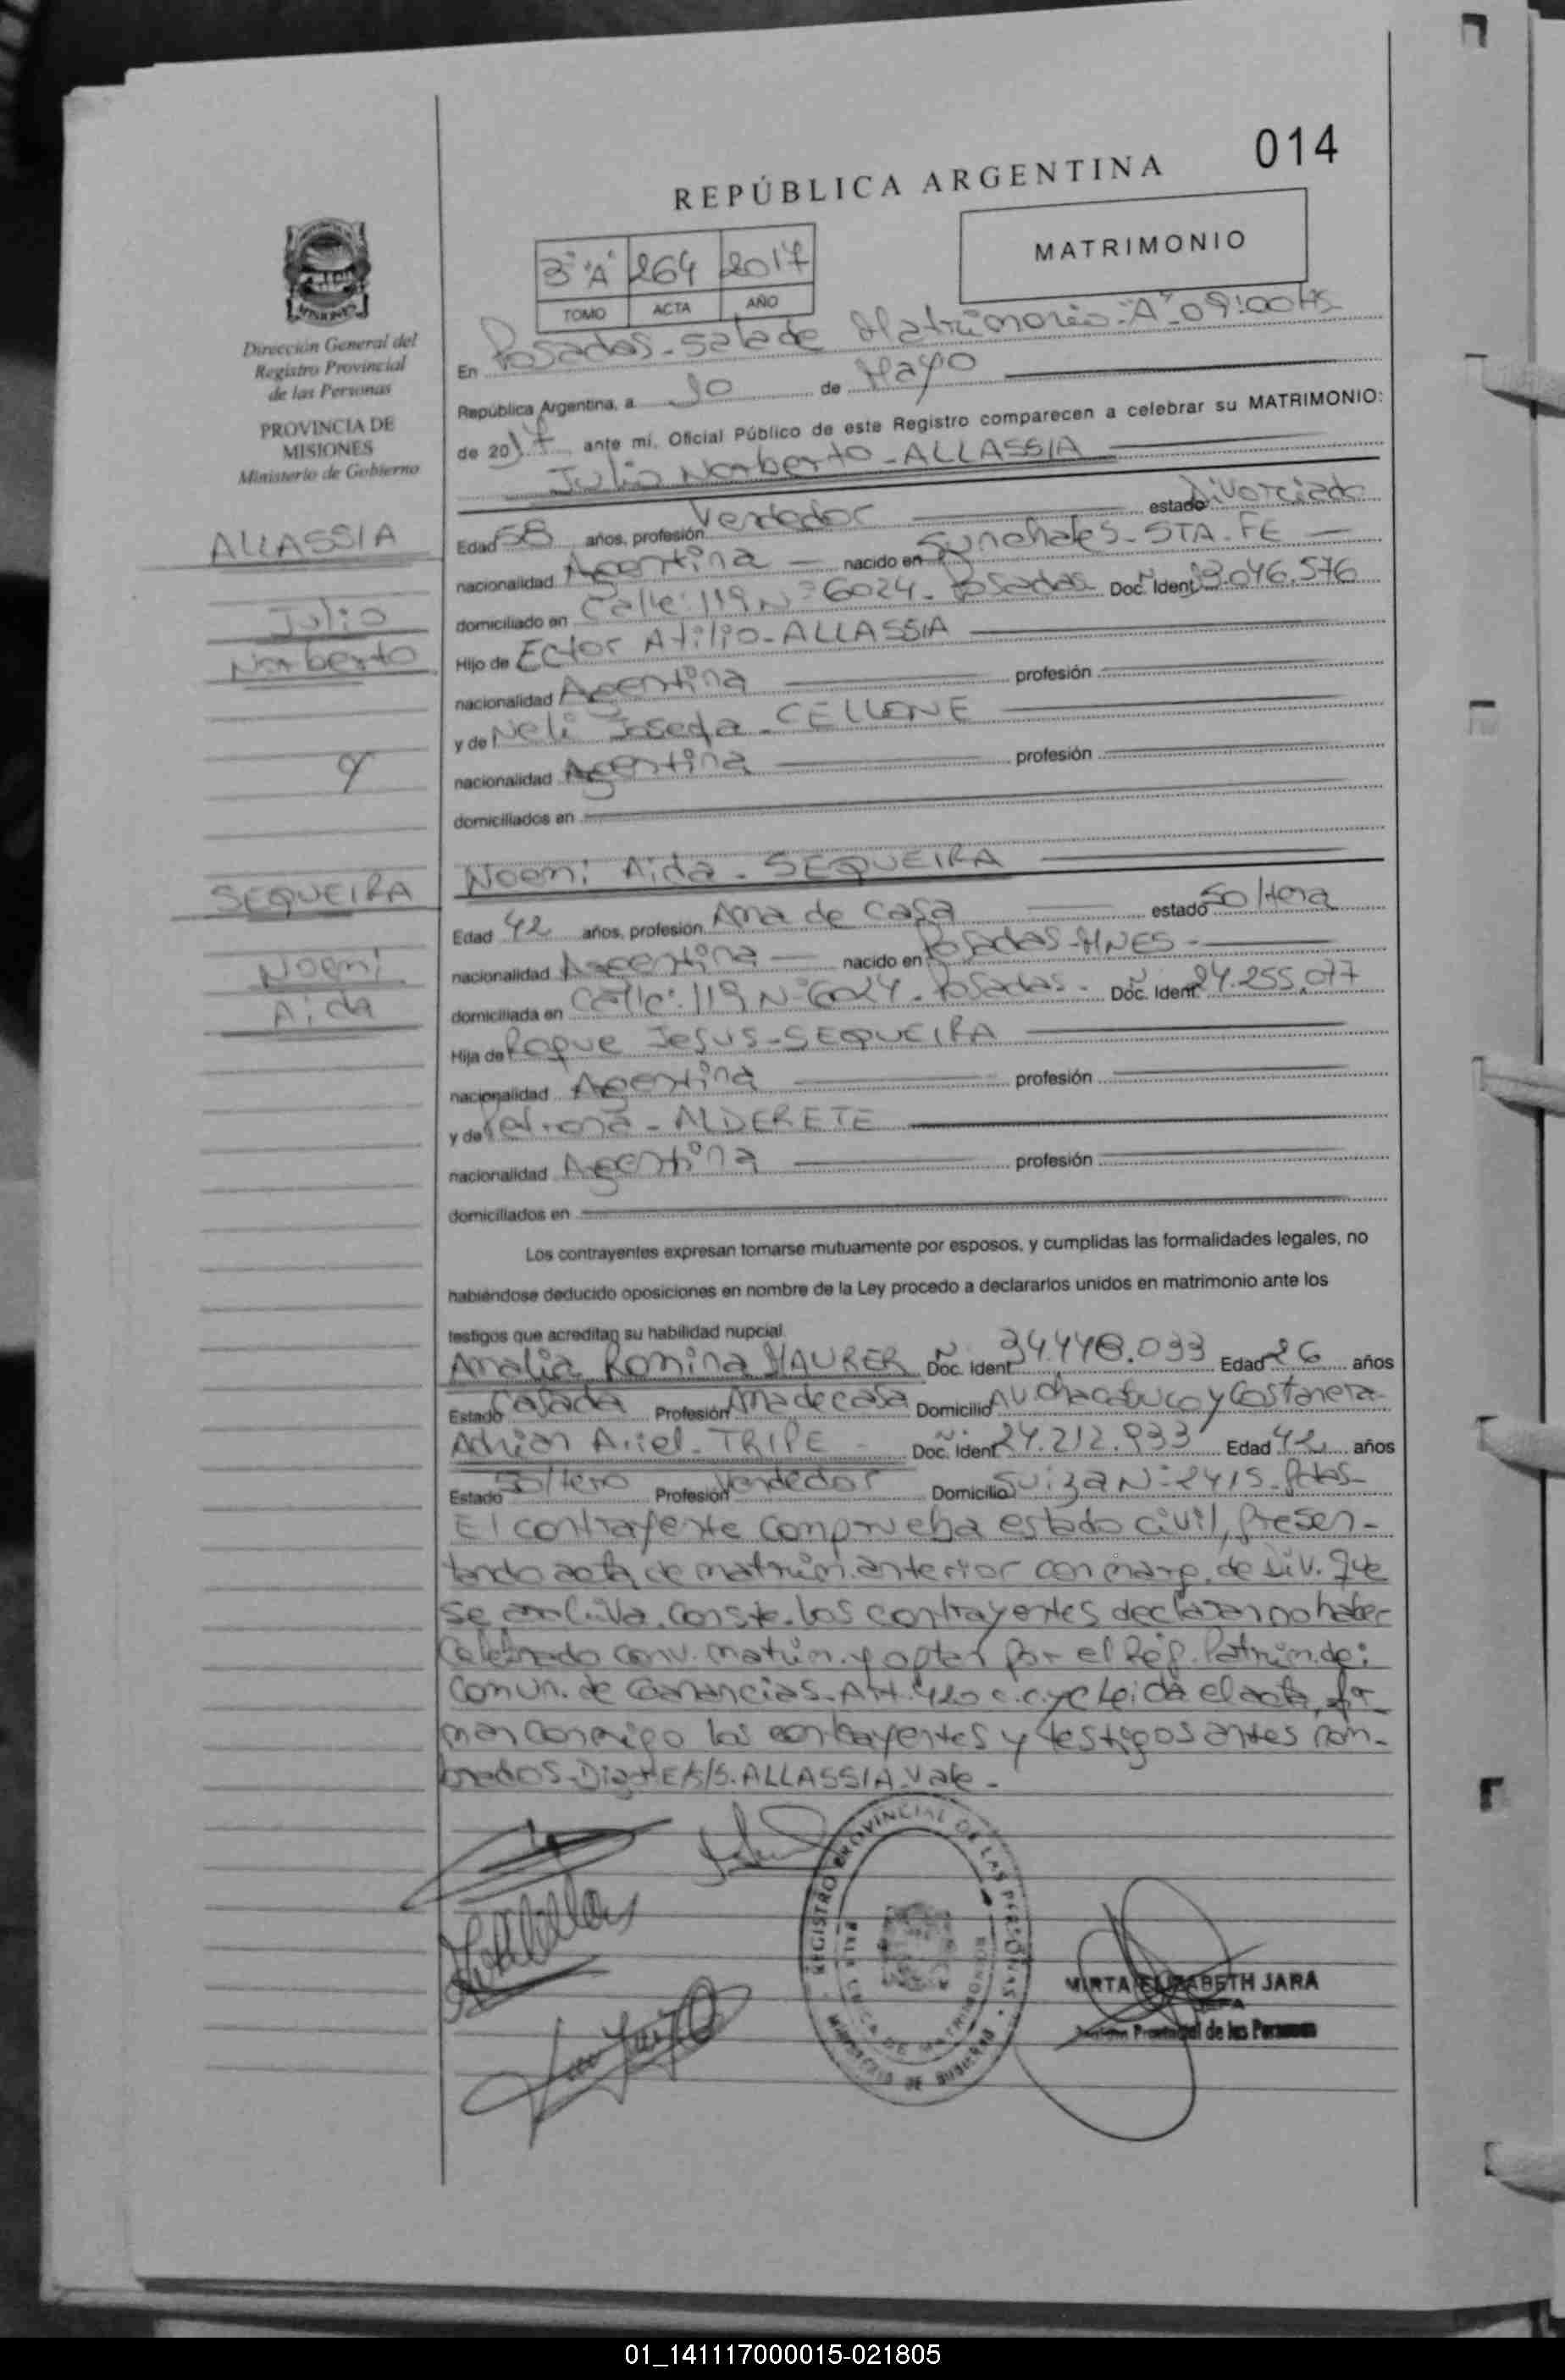 014
REPÚBLICA ARGENTINA
MATRIMONIO
3º "A" 264 2017
TOMO ACTA AÑO
Dirección General del
Registro Provincial
de las Personas
PROVINCIA DE
MISIONES
Ministerio de Gobierno
En Posadas - Sala de Matrimonio - "A" - 09:00 HS
República Argentina, a de Mayo
de 2017 ante mi, Oficial Público de este Registro comparecen a celebrar su MATRIMONIO:
Julio Norberto - ALLASSIA
ALLASSIA
Julio
Norberto
Edad 58 años, profesión Vendedor estado Divorciado
nacionalidad Argentina nacido en Sunchales - STA. FE
domiciliado en Calle: 119 Nº 6024 - Posadas Doc. Ident.
Hijo de Ector Atilio - ALLASSIA
nacionalidad Argentina profesión
y de Neli Josefa - CELLONE
y
nacionalidad Argentina profesión
domiciliados en
Noemi Aida - SEQUEIRA
SEQUEIRA
Noemi
Aida
Edad 42 años, profesión Ama de Casa estado Soltera
nacionalidad Argentina nacido en Posadas - MNES -
domiciliada en Calle: 119 Nº 6024 - Posadas - Doc. Ident. 24.255.077
Hija de Roque Jesus - SEQUEIRA
nacionalidad Argentina profesión
y de Petrona - ALDERETE
nacionalidad Argentina profesión
domiciliados en
Los contrayentes expresan tomarse mutuamente por esposos, y cumplidas las formalidades legales, no
habiéndose deducido oposiciones en nombre de la Ley procedo a declararlos unidos en matrimonio ante los
testigos que acreditan su habilidad nupcial
Amalia Romina MAURER Doc. Ident. 34.448.033 Edad 26 años
Estado Casada Profesión Ama de casa Domicilio Av. Chacabuco y Costanera
Adrian Ariel - TRIPE - Doc. Ident. 24.212.933 Edad 42 años
Estado Soltero Profesión Vendedor Domicilio Suiza Nº 2415 - Pdas -
El contrayente comprueba estado civil, presen-
tando acta de matrim. anterior con marg. de Div. que
se archiva. Conste. Los contrayentes declaran no haber
Celebrado conv. matrim. y optan por el Rég. Patrim. de:
Comun. de Ganancias. Art. 420 c.c.yc Leída el acta, fir-
man conmigo los contrayentes y testigos antes nom-
brados. ALLASSIA. Vale -
REGISTRO PROVINCIAL DE LAS PERSONAS
MIRTA ELIZABETH JARA
JEFA
Provincial de las Personas
01_141117000015-021805